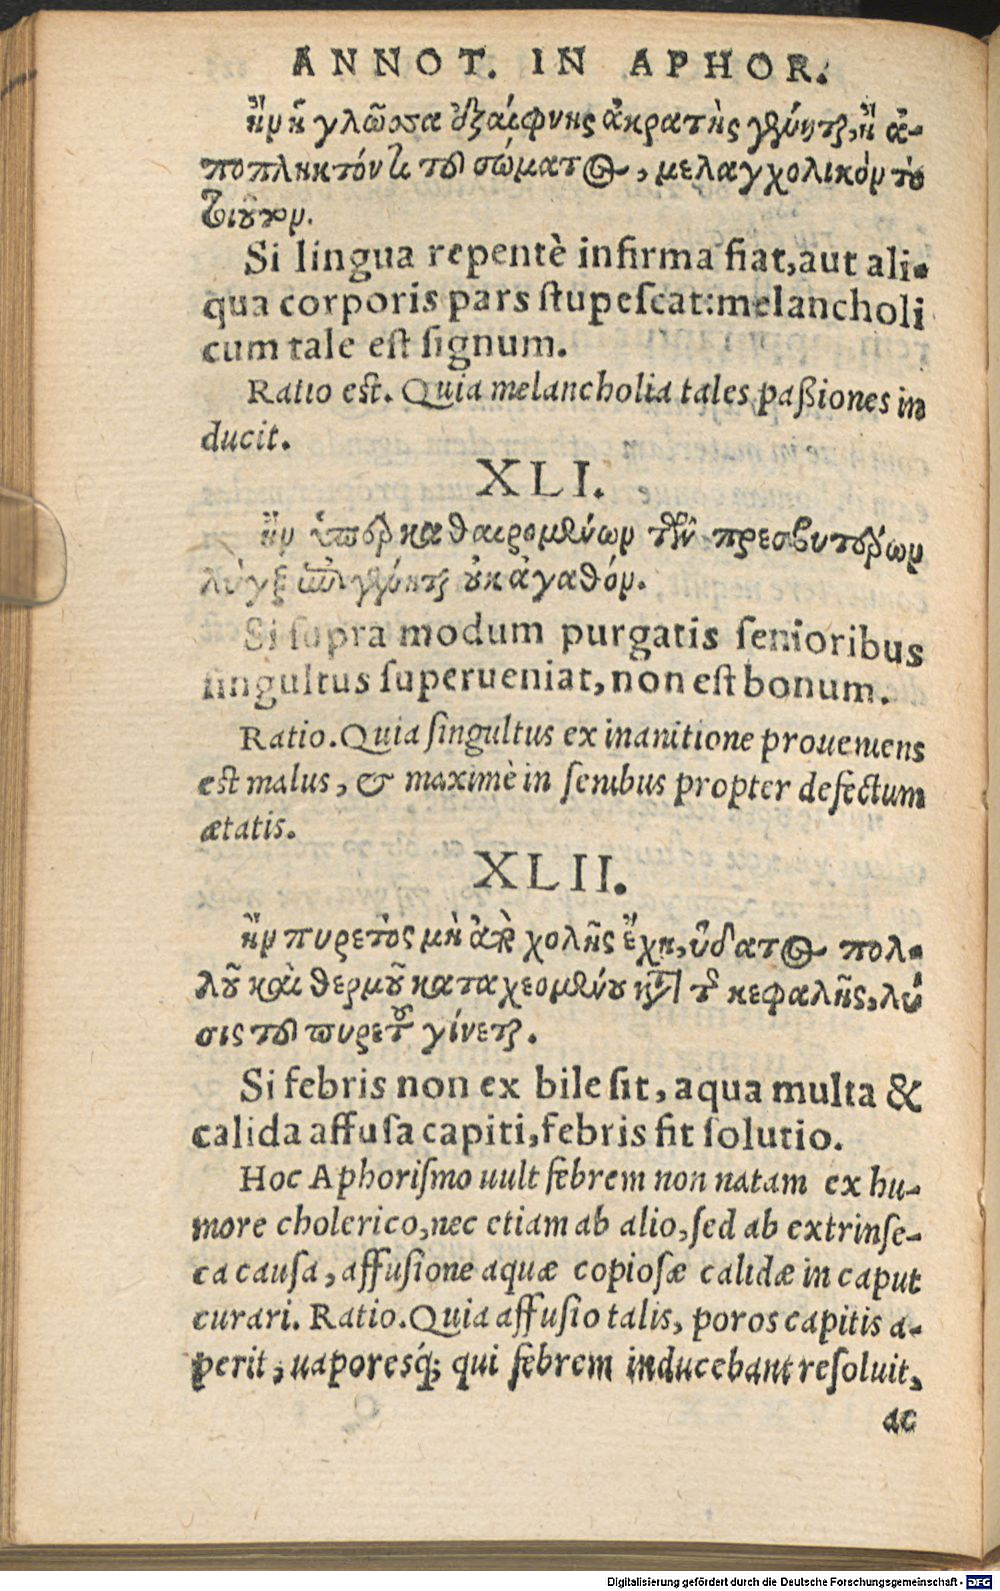 ANNOT. IN APHOR.
ἢν ἡ γλῶσσα ἐξαίφνης ἀκρατὴς γένηται, ἢ ἀ-
ποπληκτόν τι τοῦ σώματος, μελαγχολικὸν τὸ
τοιοῦτον.
Si lingua repentè infirma fiat, aut ali-
qua corporis pars ſtupeſcat: melancholi
cum tale eſt ſignum.
Ratio eſt. Quia melancholia tales paßiones in
ducit.
XLI.
ἢν ὑπερκαθαιρομένων τῶν πρεσβυτέρων
λὺγξ ἐπιγένηται οὐκ ἀγαθόν.
Si ſupra modum purgatis ſenioribus
ſingultus ſuperueniat, non eſt bonum.
Ratio. Quia ſingultus ex inanitione proueniens
eſt malus, & maximè in ſenibus propter defectum
ætatis.
XLII.
ἢν πυρετὸς μὴ ἀπὸ χολῆς ἔχῃ, ὕδατος πολ-
λοῦ καὶ θερμοῦ καταχεομένου κατὰ τῆς κεφαλῆς, λύ
σις τοῦ πυρετοῦ γίνεται.
Si febris non ex bile ſit, aqua multa &
calida affuſa capiti, febris fit ſolutio.
Hoc Aphoriſmo uult febrem non natam ex hu-
more cholerico, nec etiam ab alio, ſed ab extrinſe-
ca cauſa, affuſione aquæ copioſæ calidæ in caput
curari. Ratio. Quia affuſio talis, poros capitis a-
perit, uaporesq́; qui febrem inducebant reſoluit,
ac
Digitalisierung gefördert durch die Deutsche Forschungsgemeinschaft - DFG